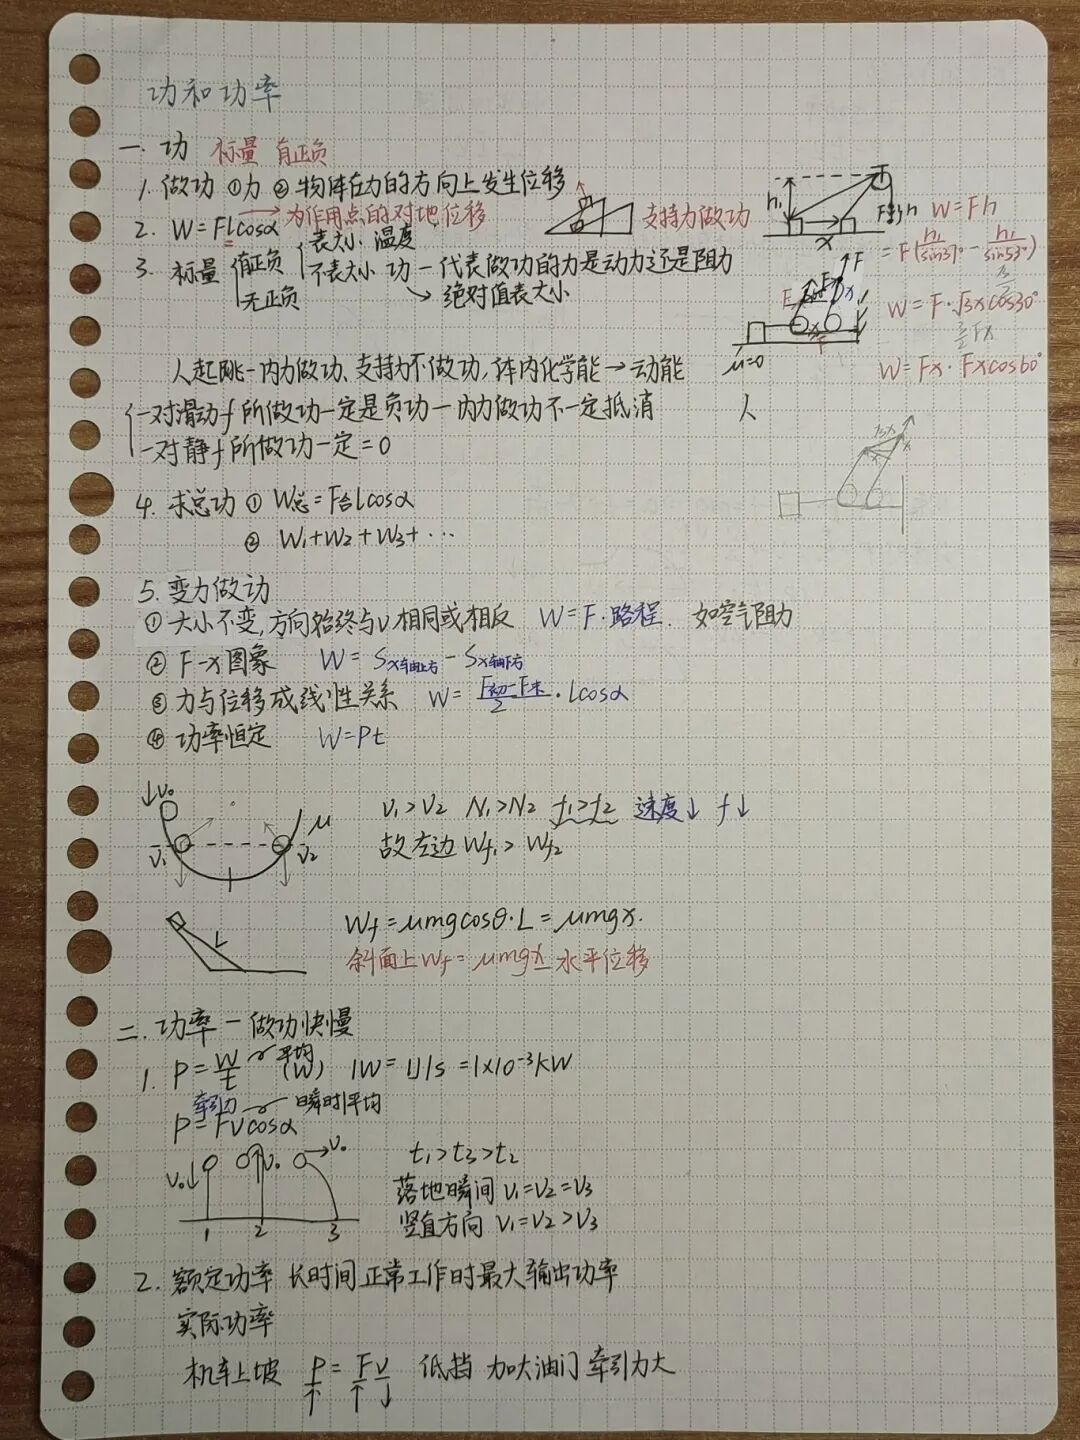 功和功率
一. 功 标量 有正负
1. 做功 ①力 ②物体在力的方向上发生位移
2. W=Flcosα → 力作用点的对地位移 支持力做功
W=Fh
=F(h₁/sin37°-h₁/sin53°)
3. 标量 有正负 表大小 温度
不表大小 功一代表做功的力是动力还是阻力
无正负 → 绝对值表大小
W=F·√3xcos30°
3/2Fx
μ=0
W=Fx·Fxcos60°
人起跳一内力做功、支持力不做功,体内化学能→动能
一对滑动f所做功一定是负功一内力做功不一定抵消 人
一对静f所做功一定=0
4. 求总功 ① W总=F合Lcosα
② W₁+W₂+W₃+…
5. 变力做功
① 大小不变,方向始终与v相同或相反 W=F·路程. 如空气阻力
② F-x图象 W=Sx轴上方-Sx轴下方
③ 力与位移成线性关系 W=F初-F末/2·Lcosα
④ 功率恒定 W=Pt
↓v₀ μ
v₁ v₂
v₁>v₂ N₁>N₂ f₁>f₂ 速度↓ f↓
故左边Wf₁>Wf₂
L
Wf=μmgcosθ·L=μmgx.
斜面上Wf=μmgx 水平位移
二. 功率一做功快慢
1. P=W/t 平均 (W) 1W=1J/s=1×10⁻³kW
牵引力 瞬时平均
P=Fvcosα
v₀↓ ↑v₀ →v₀
1 2 3
t₁>t₃>t₂
落地瞬间 v₁=v₂=v₃
竖直方向 v₁=v₂>v₃
2. 额定功率 长时间正常工作时最大输出功率
实际功率
机车上坡 P↑=F↑v↓ 低挡 加大油门 牵引力大